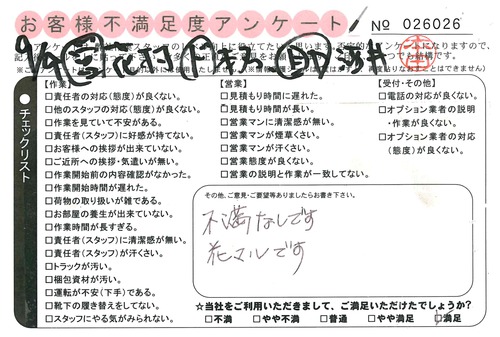 お客様不満足度アンケート
No 026026
チェックリスト
【作業】
□責任者の対応(態度)が良くない。
□他のスタッフの対応(態度)が良くない。
□作業を見ていて不安がある。
□責任者(スタッフ)に好感が持てない。
□お客様への挨拶が出来ていない。
□ご近所への挨拶・気遣いが無い。
□作業開始前の内容確認がなかった。
□作業開始時間が遅れた。
□荷物の取り扱いが雑である。
□お部屋の養生が出来ていない。
□作業時間が長すぎる。
□責任者(スタッフ)に清潔感が無い。
□責任者(スタッフ)が汗くさい。
□トラックが汚い。
□梱包資材が汚い。
□運転が不安(下手)である。
□靴下の履き替えをしてない。
□スタッフにやる気がみられない。
【営業】
□見積もり時間に遅れた。
□見積もり時間が長い。
□営業マンに清潔感が無い。
□営業マンが煙草くさい。
□営業マンが汗くさい。
□営業態度が良くない。
□営業の説明と作業が一致してない。
【受付・その他】
□電話の対応が良くない。
□オプション業者の説明
・作業が良くない。
□オプション業者の対応
(態度)が良くない。
その他、ご意見・ご要望等ありましたらお書き下さい。
不満なしです
花マルです
☆当社をご利用いただきまして、ご満足いただけたでしょうか?
□不満 □やや不満 □普通 □やや満足 □満足